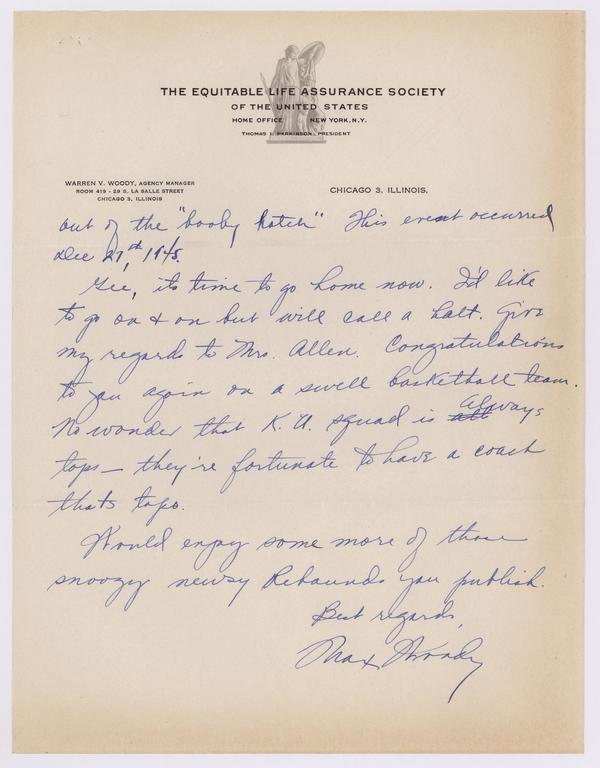 THE EQUITABLE LIFE ASSURANCE SOCIETY
OF THE UNITED STATES
HOME OFFICE NEW YORK, N.Y.
THOMAS I. PARKINSON, PRESIDENT
WARREN V. WOODY, AGENCY MANAGER
ROOM 419 - 29 S. LA SALLE STREET
CHICAGO 3, ILLINOIS
CHICAGO 3, ILLINOIS,
out of the "booby hatch" This event occurred
Dec 27th, 1945.
Gee, its time to go home now. I'd like
to go on & on but will call a halt. Give
my regards to Mrs. Allen. Congratulations
to you again on a swell basketball team.
No wonder that K. U. squad is always
tops - they're fortunate to have a coach
thats tops.
Would enjoy some more of those
snoozy newsy Rebounds you publish.
Best regards,
Max Woody